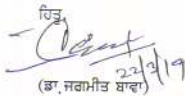 ਹਿਤੂ
22/3/19
(ਡਾ. ਜਗਮੀਤ ਬਾਵਾ)